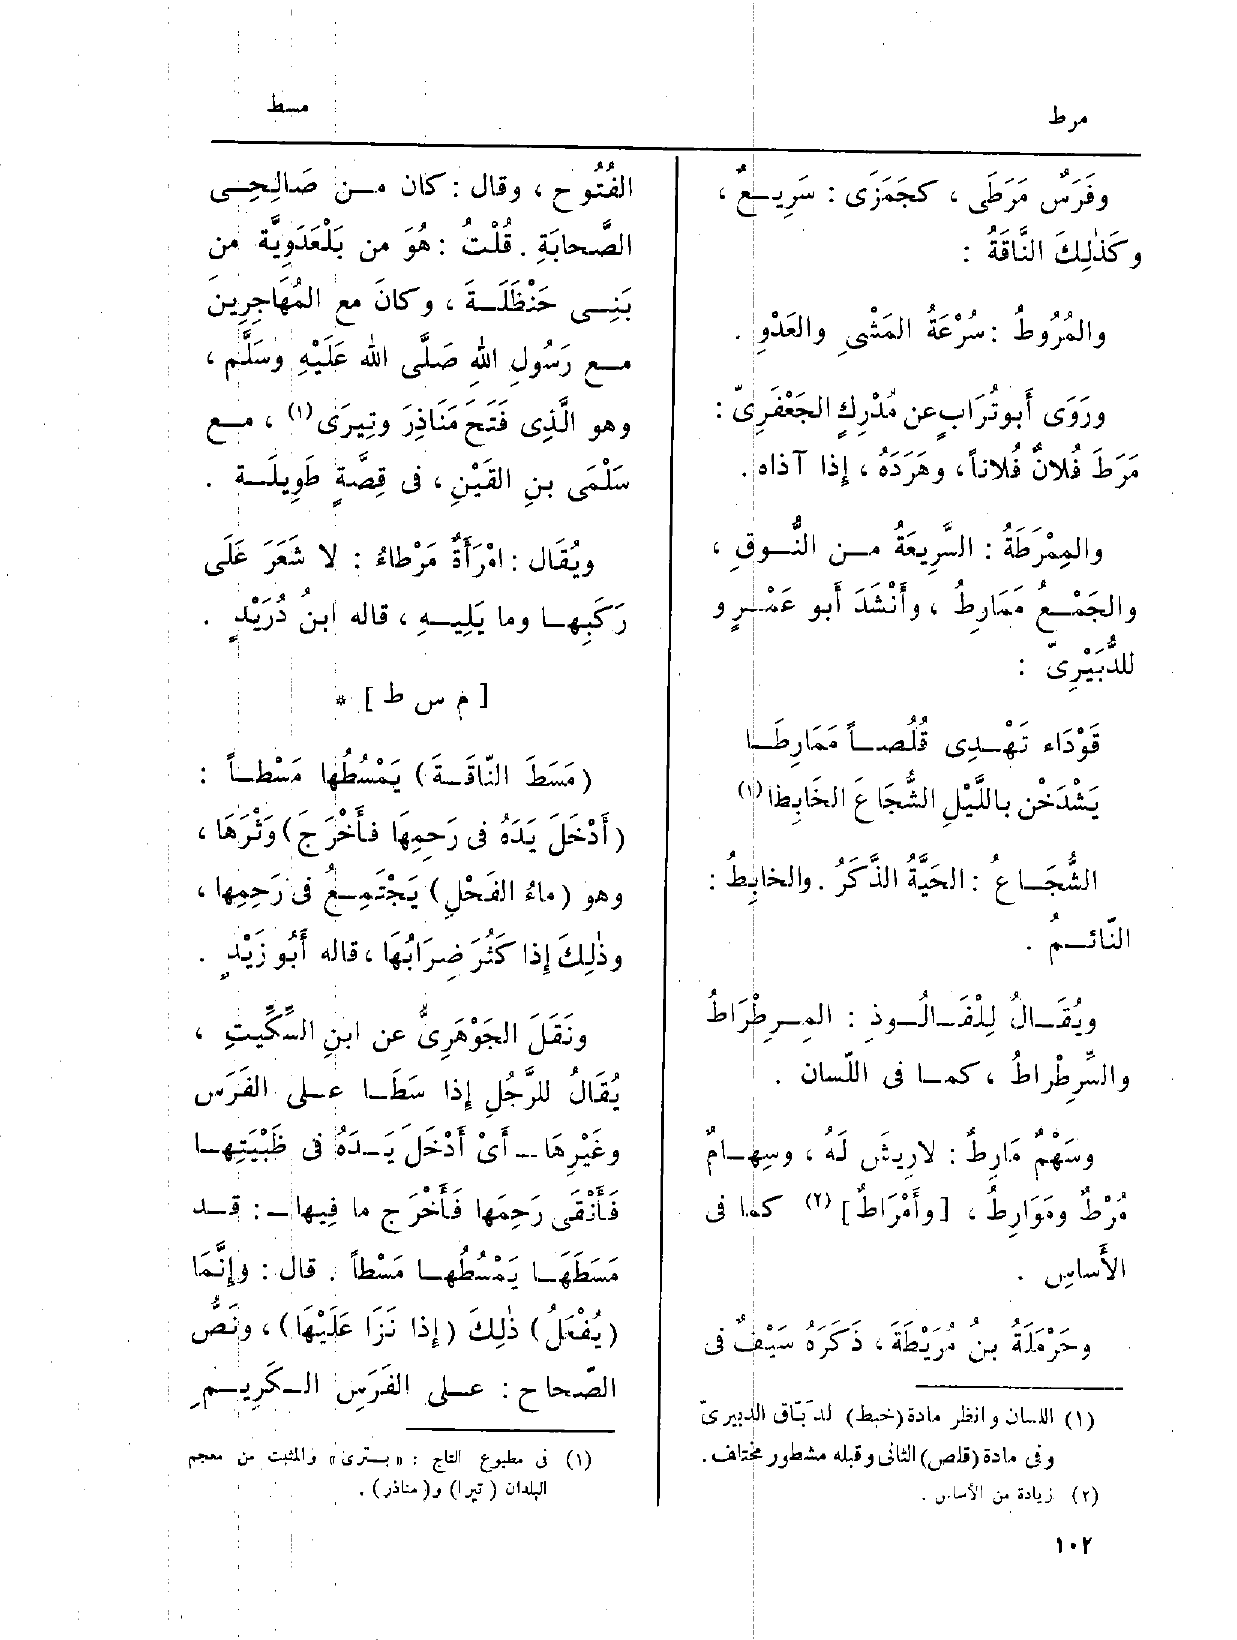 مرط
مسط
وفَرَسٌ مَرَطَى ، كجَمَزَى : سَرِيعٌ ،
وكَذٰلِكَ النَّاقَةُ :
والمُرُوطُ : سُرْعَةُ المَشْىِ والعَدْوِ .
ورَوَى أَبوتُرَابٍ عن مُدْرِكٍ الجَعْفَرِىّ :
مَرَطَ فُلانٌ فُلاناً ، وهَرَدَهُ ، إذا آذاه .
والمِمْرَطَةُ : السَّرِيعَةُ من النُّوقِ ،
والجَمْعُ مَمَارِطُ ، وأَنْشَدَ أَبو عَمْرٍو
للدُّبَيْرِىّ :
قَوْدَاء تَهْدِى قُلُصاً مَمَارِطَا
يَشْدَخْن باللَّيْلِ الشُّجَاعَ الخَابِطا (١)
الشُّجَاعُ : الحَيَّةُ الذَّكَرُ . والخابِطُ :
النّائمُ .
ويُقَالُ لِلْفَالُوذِ : المِرِطْرَاطُ
والسِّرِطْراطُ ، كما فى اللّسان .
وسَهْمٌ مَارِطٌ : لارِيشَ لَهُ ، وسِهامٌ
مُرْطٌ ومَوَارِطُ ، [وأَمْرَاطٌ] (٢) كما فى
الأَساسِ .
وحَرْمَلَةُ بنُ مُرَيْطَةَ ، ذَكَرَهُ سَيْفٌ فى
(١) اللسان وانظر مادة (خبط) لدبَّاق الدبيرىّ
وفى مادة (قلص) الثانى وقبله مشطور مختلف .
(٢) زيادة من الأساس .
١٠٢
الفُتُوحِ ، وقال : كان من صَالِحِى
الصَّحابَةِ . قُلْتُ : هُوَ من بَلْعَدَوِيَّة من
بَنِى حَنْظَلَةَ ، وكانَ مع المُهَاجِرِينَ
مع رَسُولِ اللهِ صَلَّى اللهُ عَلَيْهِ وسَلَّم ،
وهو الَّذِى فَتَحَ مَنَاذِرَ وتِيرَى (١) ، مع
سَلْمَى بنِ القَيْنِ ، فى قِصَّةٍ طَوِيلَة .
ويُقَال : امْرَأَةٌ مَرْطاءُ : لا شَعَرَ عَلَى
رَكَبِها وما يَلِيهِ ، قاله ابنُ دُرَيْدٍ .
[ م س ط ] *
(مَسَطَ النّاقَةَ) يَمْسُطُها مَسْطاً :
(أَدْخَلَ يَدَهُ فى رَحِمِهَا فأَخْرَجَ) وَثْرَهَا ،
وهو (ماءُ الفَحْلِ) يَجْتَمِعُ فى رَحِمِها ،
وذٰلِكَ إذا كَثُرَ ضِرَابُهَا ، قاله أَبُو زَيْدٍ .
ونَقَلَ الجَوْهَرِىُّ عن ابنِ السِّكِّيتِ ،
يُقَالُ للرَّجُلِ إذا سَطَا على الفَرَسِ
وغَيْرِهَا - أَىْ أَدْخَلَ يَدَهُ فى ظَبْيَتِها
فَأَنْقَى رَحِمَها فَأَخْرَج ما فِيها - : قد
مَسَطَها يَمْسُطُها مَسْطاً . قال : وإنَّمَا
(يُفْعَلُ) ذٰلِكَ (إذا نَزَا عَلَيْهَا) ، ونَصُّ
الصّحاحِ : على الفَرَسِ الكَرِيمِ
(١) فى مطبوع التاج : « بسترى » والمثبت من معجم
البلدان (تيرا) و(مناذر) .